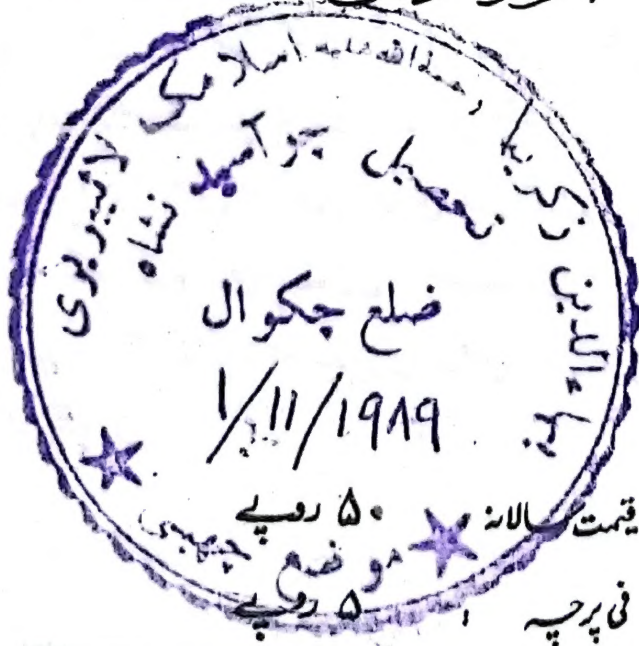 بہاءالدین زکریا رحمۃ اللہ علیہ اسلامک لائبریری
تحصیل چوآسیدنشاہ
ضلع چکوال
1/11/1989
موضع چھمبی
قیمت سالانہ ۵۰ روپے
فی پرچہ ۵ روپے